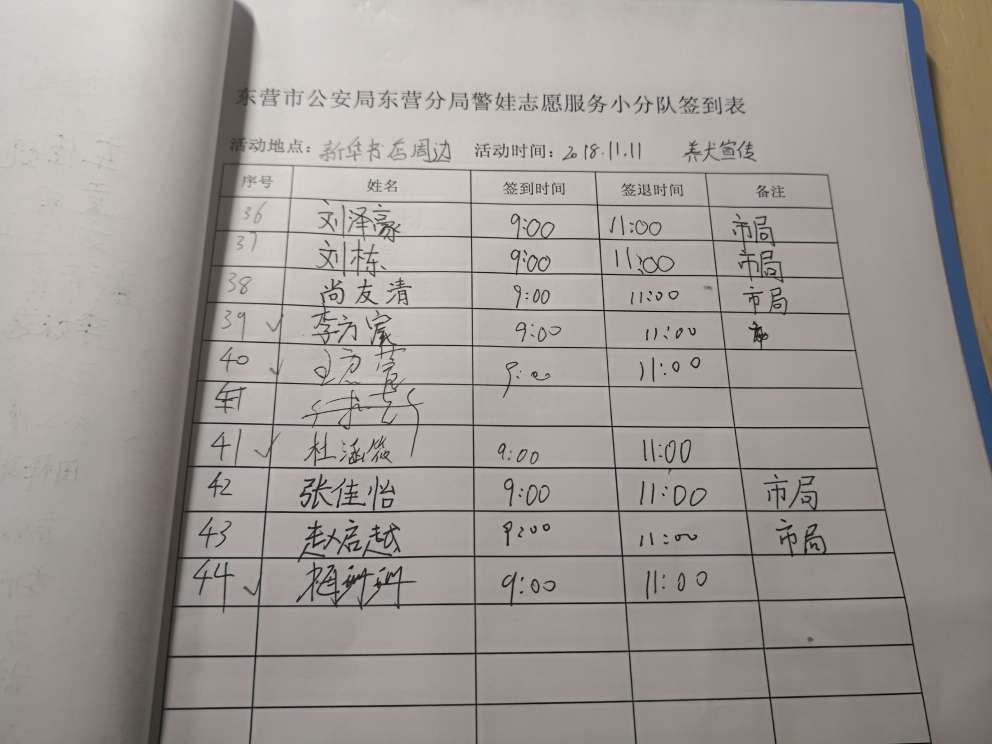 东营市公安局东营分局警娃志愿服务小分队签到表
活动地点：新华书店周边 活动时间：2018.11.11 养犬宣传
序号 姓名 签到时间 签退时间 备注
36 刘泽豪 9:00 11:00 市局
37 刘栋 9:00 11:00 市局
38 尚友清 9:00 11:00 市局
39 ✓ 李方宬 9:00 11:00 市
40 ✓ 9:00 11:00
41 ✓ 杜涵筱 9:00 11:00
42 张佳怡 9:00 11:00 市局
43 赵启越 9:00 11:00 市局
44 ✓ 梅珂珂 9:00 11:00